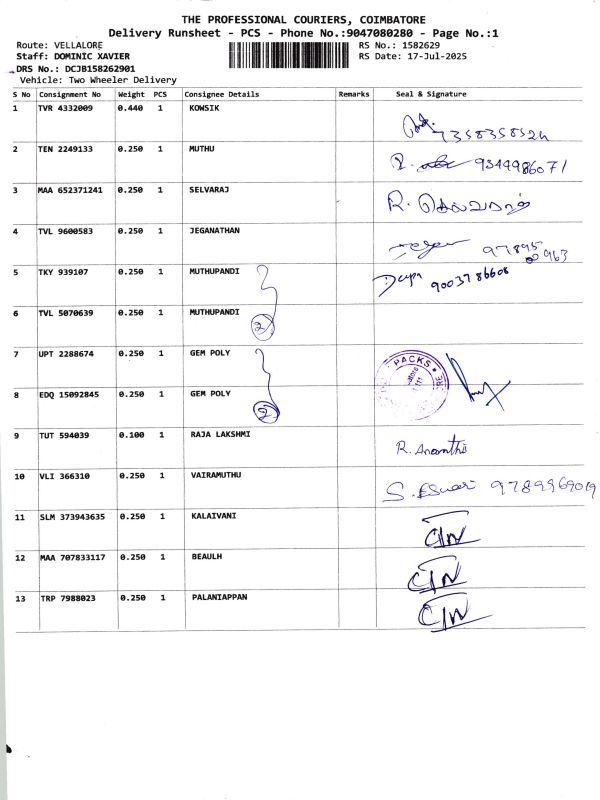 THE PROFESSIONAL COURIERS, COIMBATORE
Delivery Runsheet - PCS - Phone No.:9047080280 - Page No.:1
Route: VELLALORE
RS No.: 1582629
Staff: DOMINIC XAVIER
RS Date: 17-Jul-2025
DRS No.: DCJB158262901
Vehicle: Two Wheeler Delivery
S No Consignment No Weight PCS Consignee Details Remarks Seal & Signature
1 TVR 4332009 0.440 1 KOWSIK
7358358524
2 TEN 2249133 0.250 1 MUTHU
9344986071
3 MAA 652371241 0.250 1 SELVARAJ R. செல்வராஜ்
4 TVL 9600583 0.250 1 JEGANATHAN
97895
963
5 TKY 939107 0.250 1 MUTHUPANDI
9003786608
6 TVL 5070639 0.250 1 MUTHUPANDI
2
7 UPT 2288674 0.250 1 GEM POLY PACKS
8 EDQ 15092845 0.250 1 GEM POLY
2
9 TUT 594039 0.100 1 RAJA LAKSHMI
R. Ananthi
10 VLI 366310 0.250 1 VAIRAMUTHU
S. ESwari 9789969019
11 SLM 373943635 0.250 1 KALAIVANI
C/N
12 MAA 707833117 0.250 1 BEAULH
C/N
13 TRP 7988023 0.250 1 PALANIAPPAN
C/N